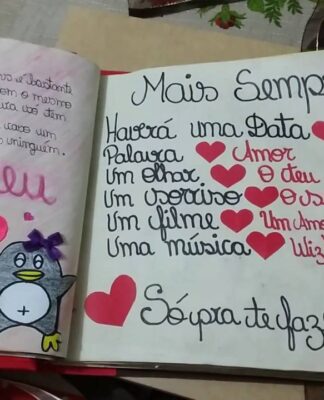 é bastante
com o mesmo
tem
caso um
ninguém.
eu
Mais Semp
Haverá uma Data
Palavra Amor
Um olhar O teu
Um sorriso O s
Um filme Um Am
Uma música Wiz
Só pra te faz